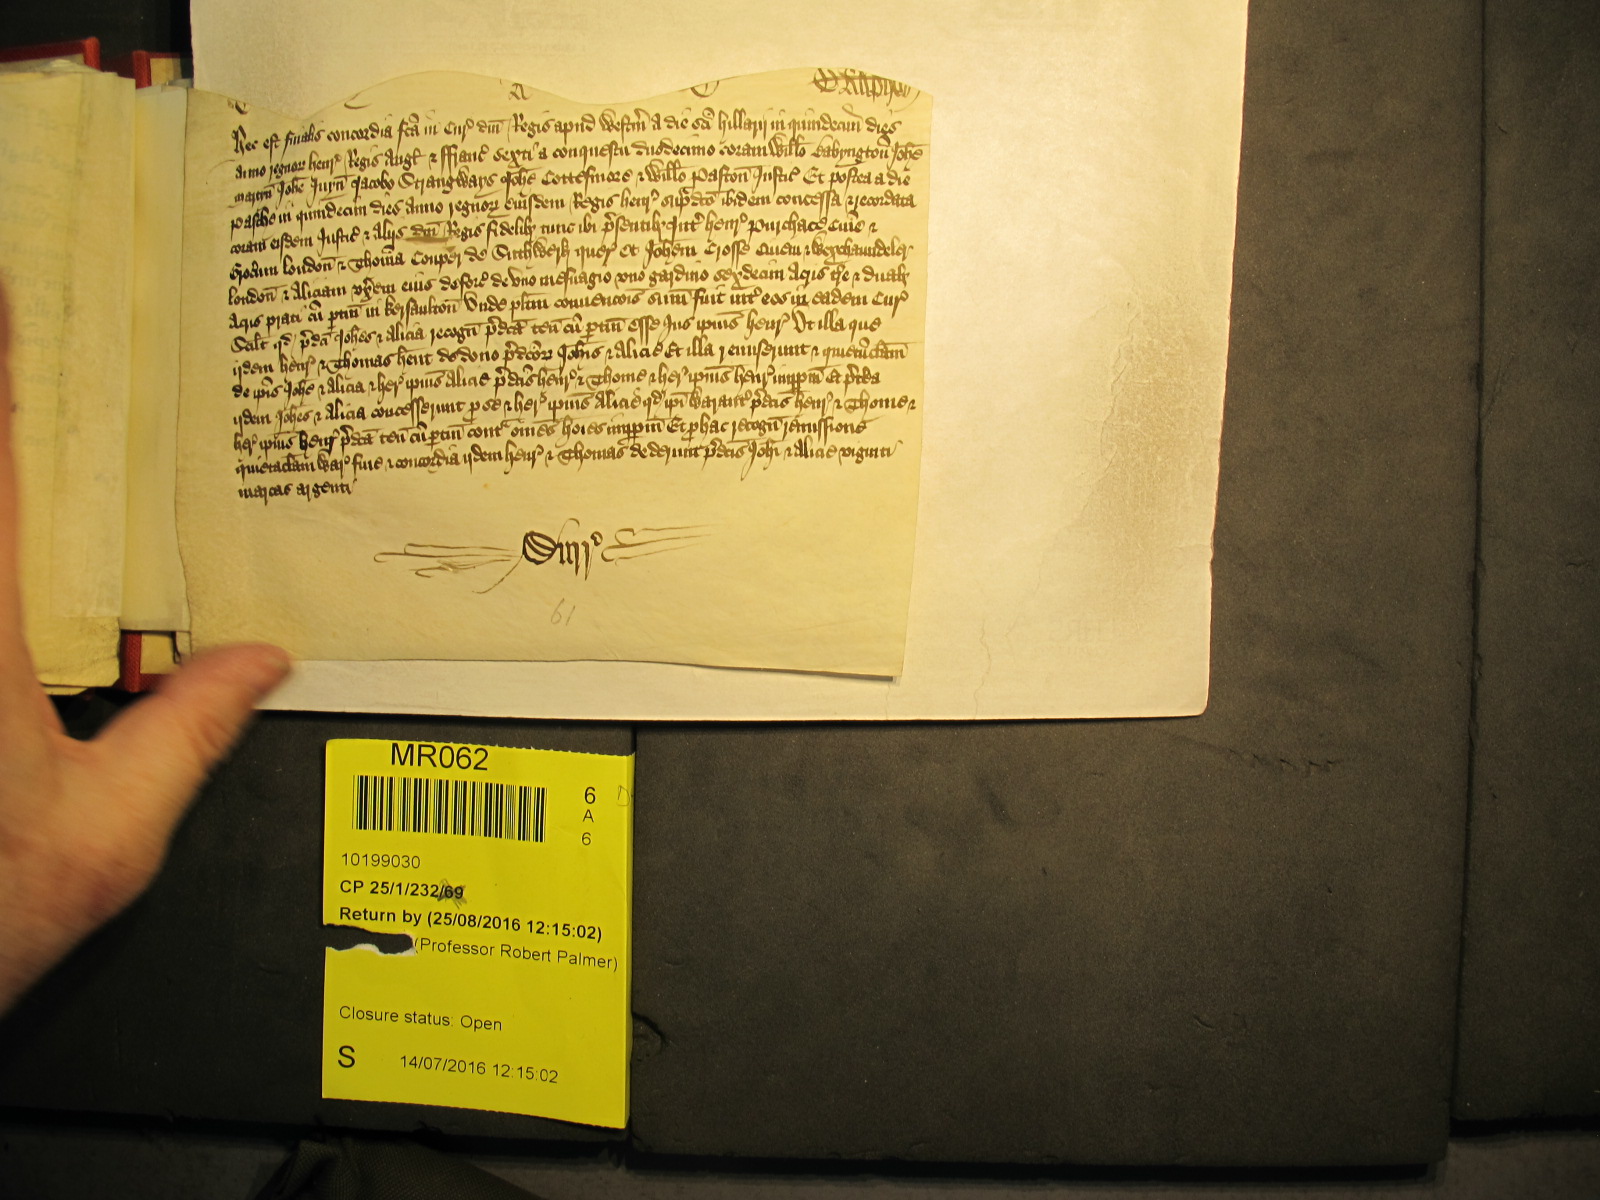 Hec est finalis concordia fc̃a in Cur' dñi Regis apud Westm̃ a die sc̃i Hillarij in quindecim dies
anno regnor' Henr' Regis Angl' & ffranc' sexti a conquestu duodecimo coram Willo Babyngton̄ Johe
Martyn Johe Juyn̄ Jacobo Strangways Johe Cottesmore & Willo Paston̄ Justic' Et postea a die
Pasche in quindecim dies anno regnor' eiusdem Regis Henr' sup̃dc̃o ibidem concessa & recordata
coram eisdem Justic' & alijs dñi Regis fidelib3 tunc ibi p̃sentib3 Int' Henr' Purchace Ciuē &
London̄ & Thom̃a Couper de Suthwerk quer' Et Johem Crosse Ciuem & Wexchaundeler
London̄ & Aliciam vx̃em eius deforc' de vno mesuagio vno gardino sexdecim acris t̃re & duab3
acris prati cū ptiñ in Kersaulton̄ Vnde pl̃itm conuencōis sum̄ fuit int' eos in eadem Cur'
Scil't qd p̃dc̃i Johes & Alicia recogñ p̃dc̃a teñ cū ptiñ esse Jus ip̃ius Henr' Vt illa que
ijdem Henr' & Thomas hent de dono p̃dc̃or' Johis & Alicie Et illa remiserunt & quietūclam̄
de ip̃is Johe & Alicia & her' ip̃ius Alicie p̃dc̃is Henr' & Thome & her' ip̃ius Henr' imppm̄ Et p̃t'ea
ijdem Johes & Alicia concesserunt p se & her' ip̃ius Alicie qd ip̃i Warant' p̃dc̃is Henr' & Thome &
her' ip̃ius Henr' p̃dc̃a teñ cū ptiñ cont' om̄es hoīes imppm̄ Et p hac recogñ remissione
quietaclam̄ War' fine & concordia ijdem Henr' & Thomas dederunt p̃dc̃is Johi & Alicie viginti
marcas argenti
Surr'
61
MR062
6
A
6
10199030
CP 25/1/232/69
Return by (25/08/2016 12:15:02)
(Professor Robert Palmer)
Closure status: Open
S 14/07/2016 12:15:02